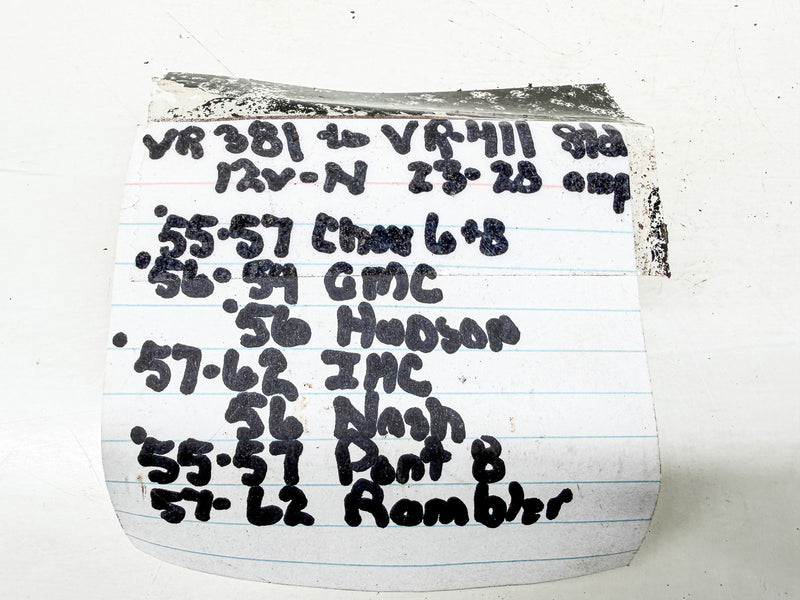 VR 381 to VR-411 Std
12V-N 23-28 amp
'55-57 Chev 6+8
'56-59 GMC
'56 Hudson
'57-62 IHC
56 Nash
'55-57 Pont 8
57-62 Rambler